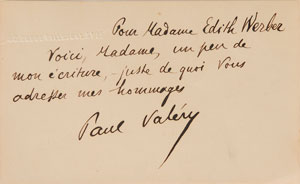 Pour Madame Edith Werber
Voici, Madame, un peu de
mon écriture, juste de quoi vous
adresser mes hommages
Paul Valéry